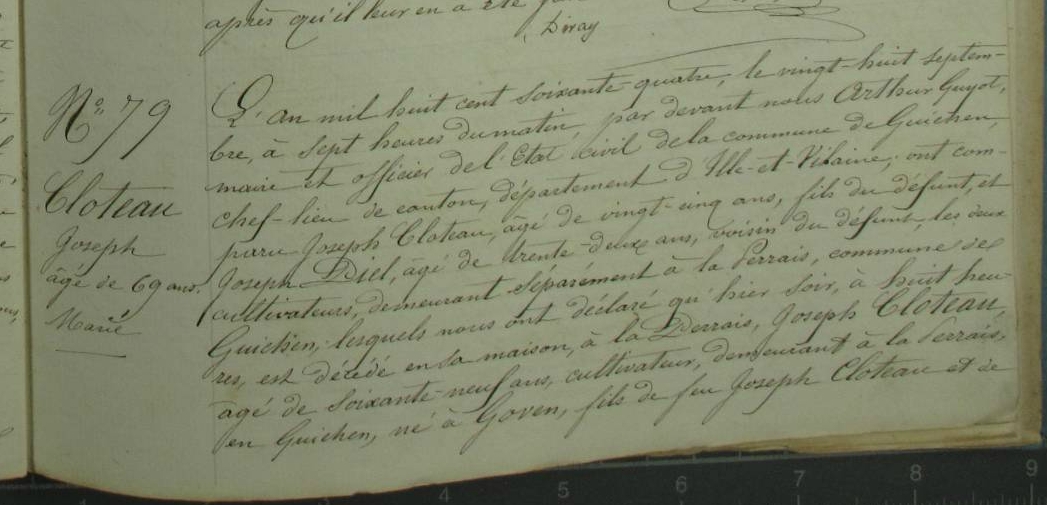 après qu'il leur en a été
Diray
N.° 79
Cloteau
Joseph
âgé de 69 ans.
Marié
L'an mil huit cent soixante-quatre, le vingt-huit septem-
bre, à sept heures du matin, par devant nous Arthur Guyot,
maire et officier de l'Etat civil de la commune de Guichen,
chef-lieu de canton, département d'Ille-et-Vilaine, ont com-
paru Joseph Cloteau, âgé de vingt-cinq ans, fils du défunt, et
Joseph Diel, âgé de trente-deux ans, voisin du défunt, les deux
cultivateurs, demeurant séparément à la Perrais, commune de
Guichen, lesquels nous ont déclaré qu'hier soir, à huit heu-
res, est décédé en sa maison, à la Perrais, Joseph Cloteau,
âgé de soixante-neuf ans, cultivateur, demeurant à la Perrais,
en Guichen, né à Goven, fils de feu Joseph Cloteau et de
4 5 6 7 8 9